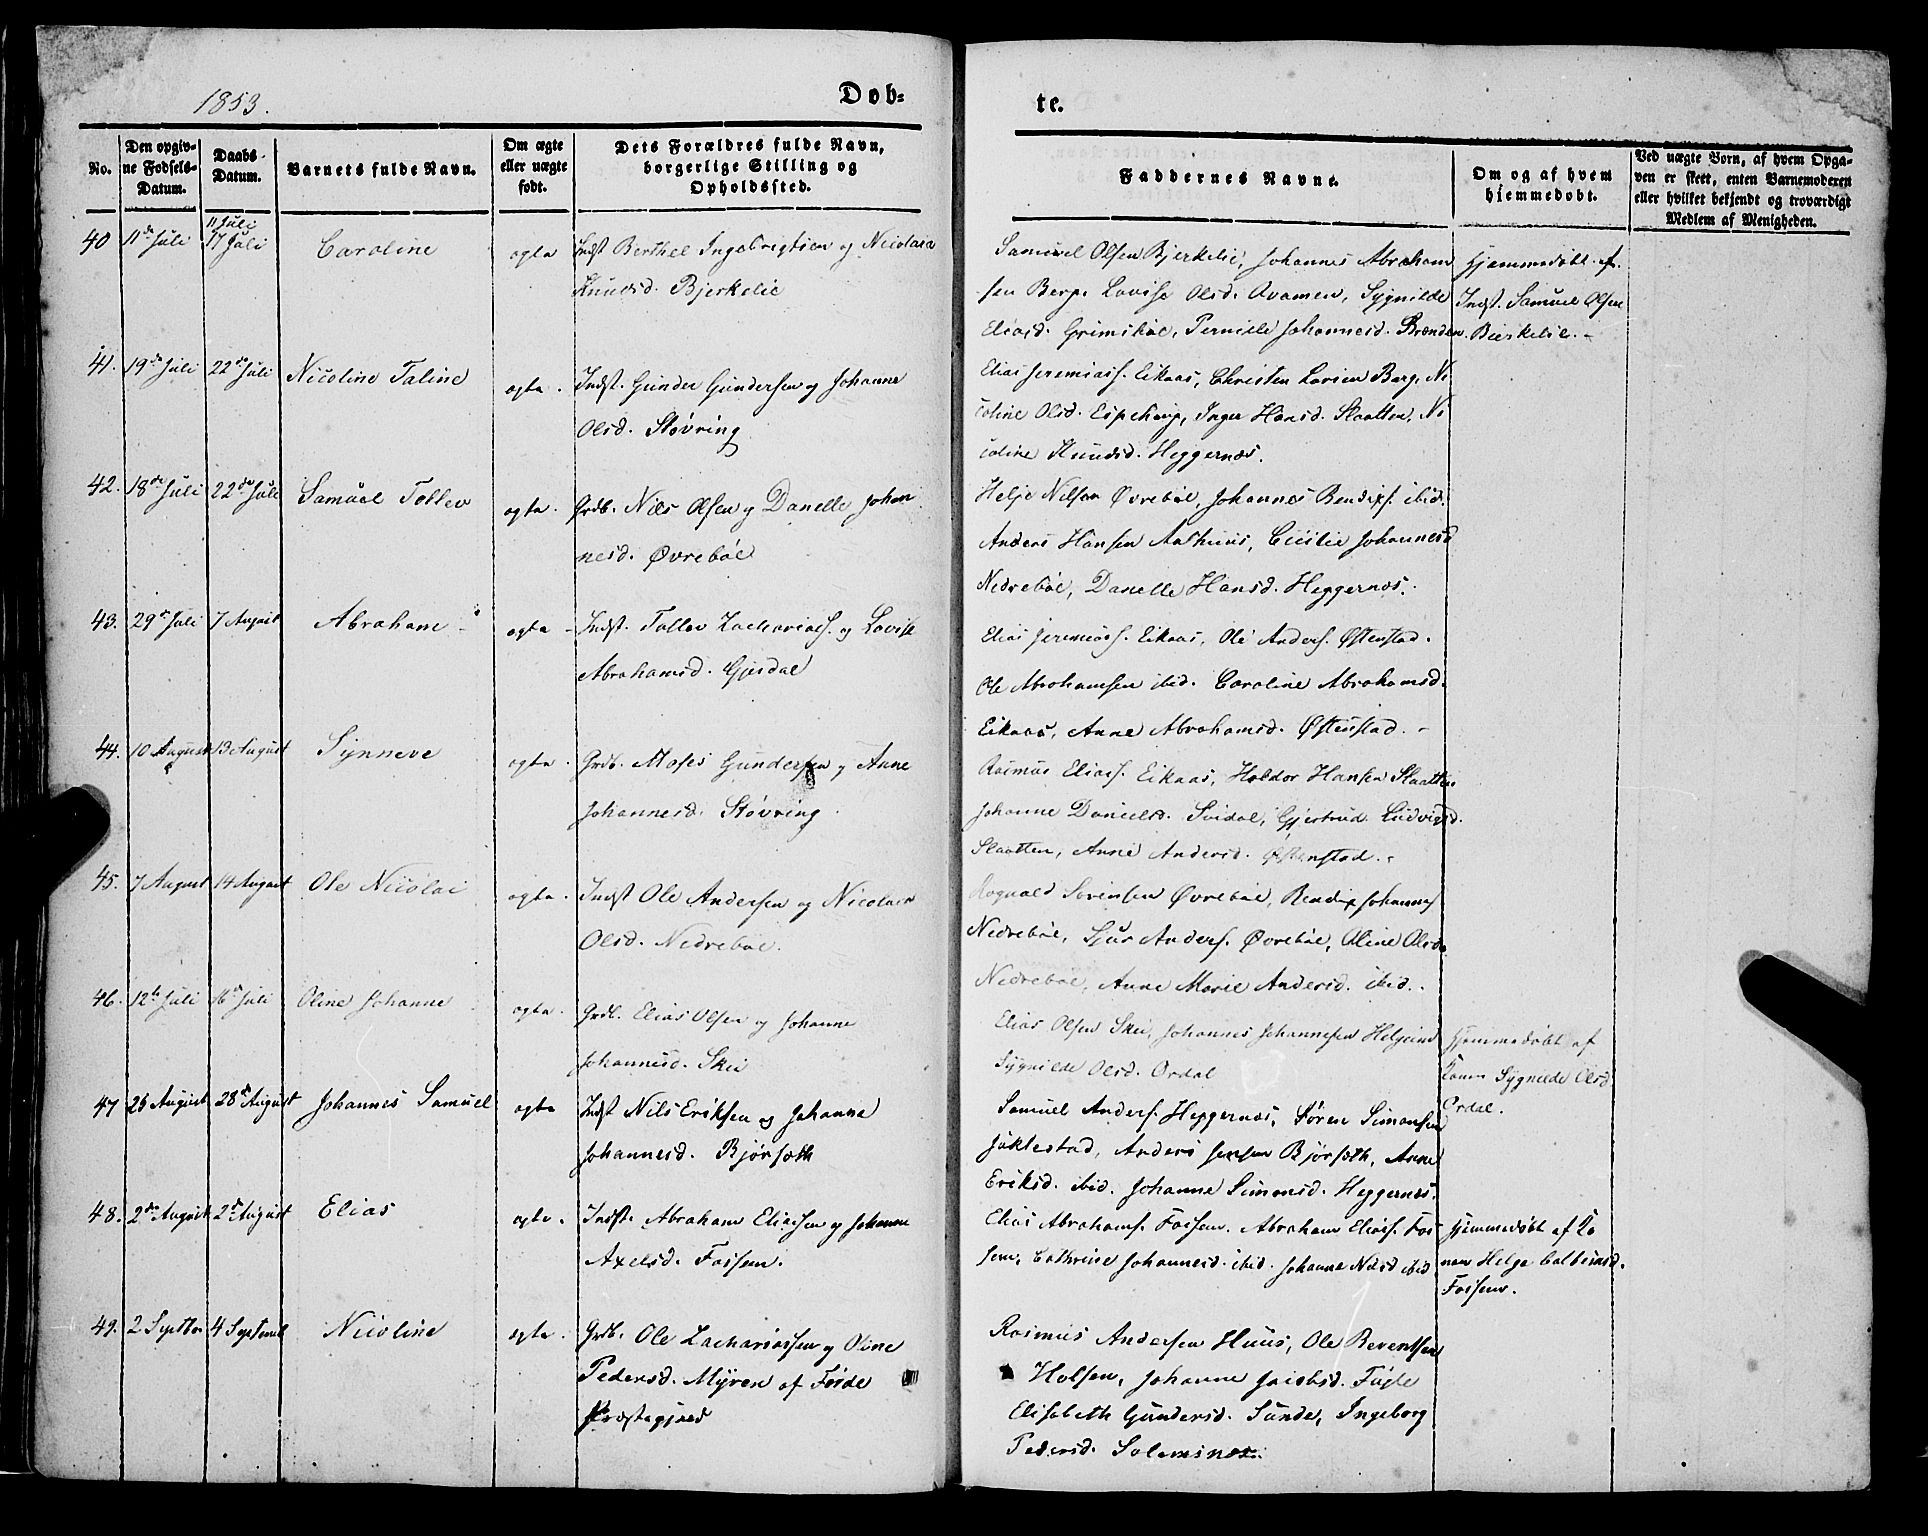 1853.
Døb=
te.
No.
Den opgiv-
ne Fødsels-
Datum.
Daabs-
Datum.
Barnets fulde Navn.
Om ægte
eller uægte
født.
Dets Forældres fulde Navn,
borgerlige Stilling og
Opholdssted.
Faddernes Navne.
Om og af hvem
hjemmedøbt.
Ved uægte Børn, af hvem Opga-
ven er skeet, enten Barnemoderen
eller hvilket bekjendt og troværdigt
Medlem af Menigheden.
40
11te Juli
11 Juli
17 Juli
Caroline
ægte
Indst Berthel Ingebrigtsen og Nicolaia
Knudsd. Bjerkelie
Samuel Olsen Bjerkelie, Johannes Abraham
sen Berge Lovise Olsd. Qvamen, Sygnilde
Eliasd. Grimsbøe, Pernille Johannesd. Brænden.
Hjemmedøbt af
Indst. Samuel Olsen
Bierkelie. -
41.
19de Juli
22de Juli
Nicoline Taline
ægte.
Indst. Gunder Gundersen og Johanne
Olsd. Støvring
Elias Jeremiass. Eikaas, Christen Larsen Berge Ni
coline Olsd. Espehoug, Inger Hansd. Slaatten, Ni
coline Knudsd. Heggernæs.
42.
18de Juli
22de Juli
Samuel Tollev
ægte.
Grdb. Niels Olsen og Danelle Johan
nesd. Øvrebøe
Helje Nilsen Øvrebøe, Johannes Bendixs. ibid.
Anders Hansen Aarhuus, Cicilie Johannesd
Nedrebøe, Danelle Hansd. Heggernæs.
43.
29de Juli
7 August
Abrahame
ægte
Indst. Tollev Zachariass. og Lovise
Abrahamsd. Gjesdal
Elias Jeremiass. Eikaas, Ole Anders. Østenstad.
Ole Abrahamsen ibid. Caroline Abrahamsd.
Eikaas, Anne Abrahamsd. Østenstad. -
44.
10 August
13 August
Synneve
ægte.
Grdb. Moses Gundersen og Anne
Johannesd. Støvring
Rasmus Eliass. Eikaas, Haldor Hansen Slaatten
Johanne Danielsd. Svidal, Gjertrud Ludvigsd.
Slaatten, Anne Andersd. Østenstad. -
45.
7 August
14 August
Ole Nicolai
ægte.
Indst Ole Andersen og Nicolaia
Olsd. Nedrebøe.
Rognald Sørensen Øvrebøe, Bendix Johannes
Nedrebøe, Sjur Anders. Øvrebøe, Oline Olsd.
Nedrebøe, Anne Marie Andersd. ibid.
46.
12te Juli
16de Juli
Oline Johanne
ægte.
Grdb. Elias Olsen og Johanne
Johannesd. Skei
Elias Olsen Skei, Johannes Johannesen Helgeim
Sygnilde Olsd. Ordal
Hjemmedøbt af
Konen Sygnilde Olsd
Ordal.
47
25 August
28de August
Johannes Samuel
ægte
Indst Nils Eriksen og Johanne
Johannesd. Bjørseth
Samuel Anders. Heggernæs, Søren Simonsen
Joklestad, Anders Jensen Bjørseth, Anne
Eriksd. ibid. Johanne Simonsd. Heggernæs.
48.
2den August
2de August
Elias
ægte.
Indst. Abraham Eliassen og Johanne
Axelsd. Fossem.
Elias Abrahams. Fossem. Abraham Eliass. Fos
sem, Cathrine Johannesd. ibid. Johanne Nilsd ibid
Hjemmedøbt af Ko
nen Helge
Fossem.
49.
2 Septber
4 Septemb
Nicoline
ægte.
Grdb. Ole Zachariassen og Oline
Pedersd. Myren af Førde
Præstegjæld
Rasmus Andersen Huus, Ole Berentsen
Holsen, Johanne Jacobsd. Fugle
Elisabeth Gundersd. Sunde, Ingeborg
Pedersd. Solemsnæs.